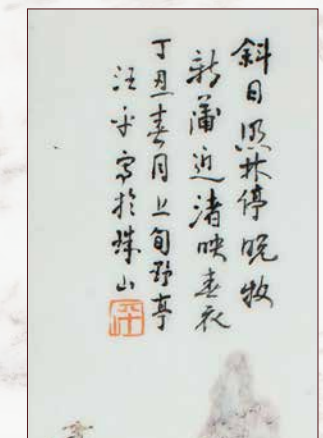 斜日照林停晚牧
新蒲近渚映春衣
丁丑春月上旬野亭
汪平寫於珠山
平